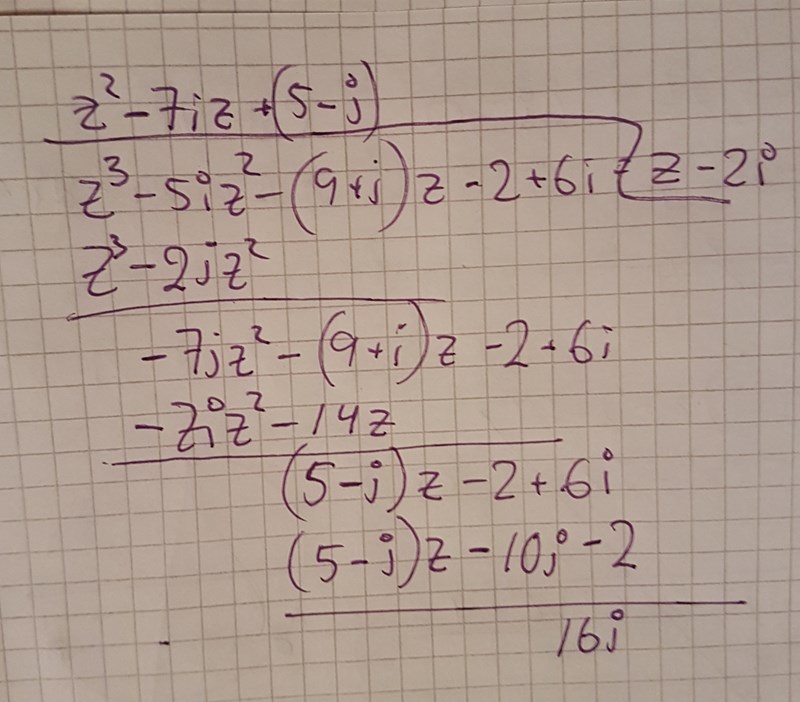 z² - 7iz + (5-i)
z³ - 5iz² - (9+i)z - 2 + 6i z - 2i
z³ - 2iz²
-7iz² - (9+i)z - 2 + 6i
-7iz² - 14z
(5-i)z - 2 + 6i
(5-i)z - 10i - 2
16i